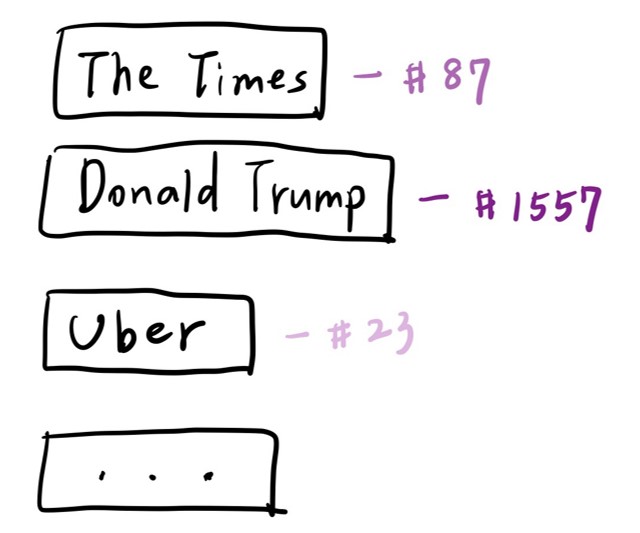 The Times - #87
Donald Trump - #1557
Uber - #23
...